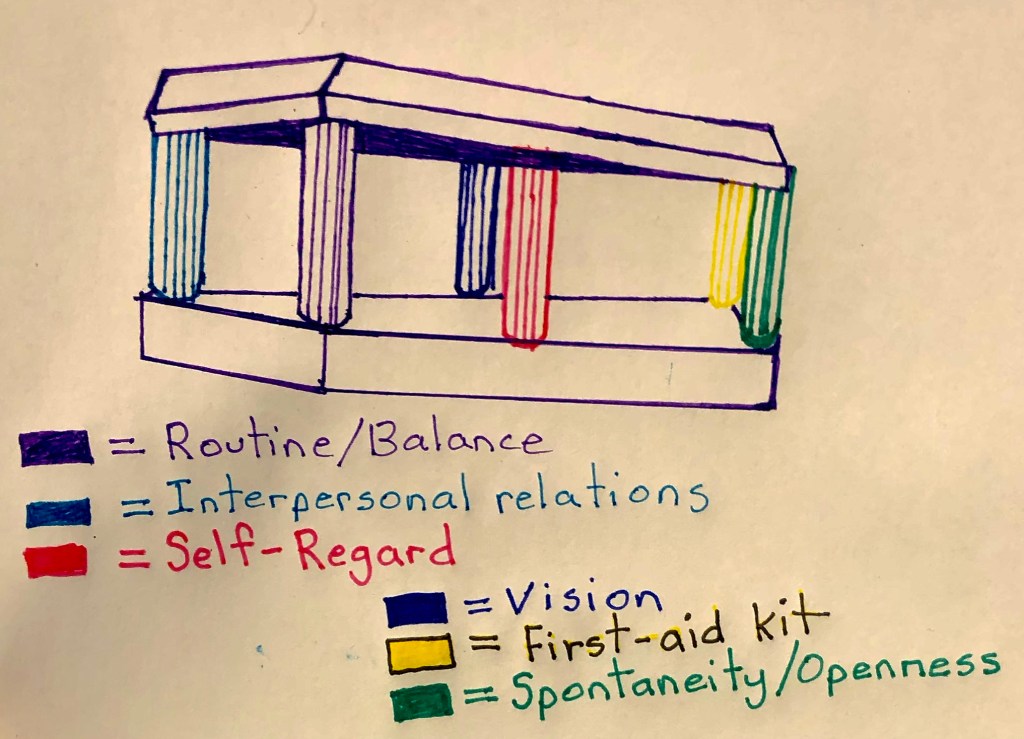 = Routine/Balance
= Interpersonal relations
= Self-Regard
= Vision
= First-aid kit
= Spontaneity/Openness